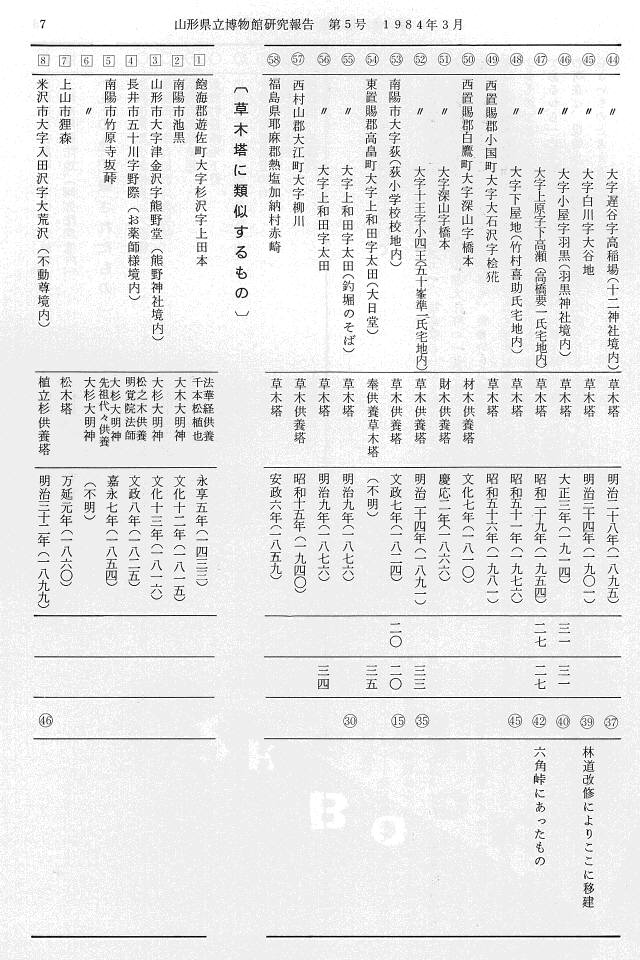 7　山形県立博物館研究報告　第5号　1984年3月
㊹　大字遅谷字高稲場（十二神社境内）　草木塔　明治二十八年（一八九五）　㊲
㊺　〃　大字白川字大谷地　草木塔　明治三十四年（一九〇一）　㊴　林道改修によりここに移建
㊻　〃　大字小屋字羽黒（羽黒神社境内）　草木塔　大正三年（一九一四）　三一　三一　㊵
㊼　〃　大字上原字下高瀬（高橋要一氏宅地内）　草木塔　昭和二十九年（一九五四）　二七　二七　㊷　六角峠にあったもの
㊽　〃　大字下屋地（竹村喜助氏宅地内）　草木塔　昭和五十一年（一九七六）　㊺
㊾　西置賜郡小国町大字大石沢字桧　草木塔　昭和五十六年（一九八一）
㊿　西置賜郡白鷹町大字深山字橋本　材木供養塔　文化七年（一八一〇）
51　〃　大字深山字橋本　財木供養塔　慶応二年（一八六六）
52　〃　大字十王字小四王（五十峯準一氏宅地内）　草木供養塔　明治二十四年（一八九一）　三三　㉟
53　南陽市大字荻（荻小学校校地内）　草木供養塔　文政七年（一八二四）　二〇　二〇　⑮
54　東置賜郡高畠町大字上和田字太田（大日堂）　奉供養草木塔　（不明）　三五
55　〃　大字上和田字太田（釣堀のそば）　草木塔　明治九年（一八七六）　㉚
56　〃　大字上和田字太田　草木塔　明治九年（一八七六）　三四
57　西村山郡大江町大字柳川　草木供養塔　昭和十五年（一九四〇）
58　福島県耶麻郡熱塩加納村赤崎　草木供養塔　安政六年（一八五九）
〔草木塔に類似するもの〕
1　飽海郡遊佐町大字杉沢字上田本　法華経供養　千本松植也　永享五年（一四三三）
2　南陽市池黒　大木大明神　文化十二年（一八一五）
3　山形市大字津金沢字熊野堂（熊野神社境内）　大杉大明神　文化十三年（一八一六）
4　長井市五十川字野際（お薬師様境内）　松之木供養　明覚院法師　文政八年（一八二五）
5　南陽市竹原寺坂峠　大杉大明神　先祖代々供養　嘉永七年（一八五四）
6　〃　大杉大明神　（不明）
7　上山市狸森　松木塔　万延元年（一八六〇）
8　米沢市大字入田沢字大荒沢（不動尊境内）　植立杉供養塔　明治三十二年（一八九九）　㊻